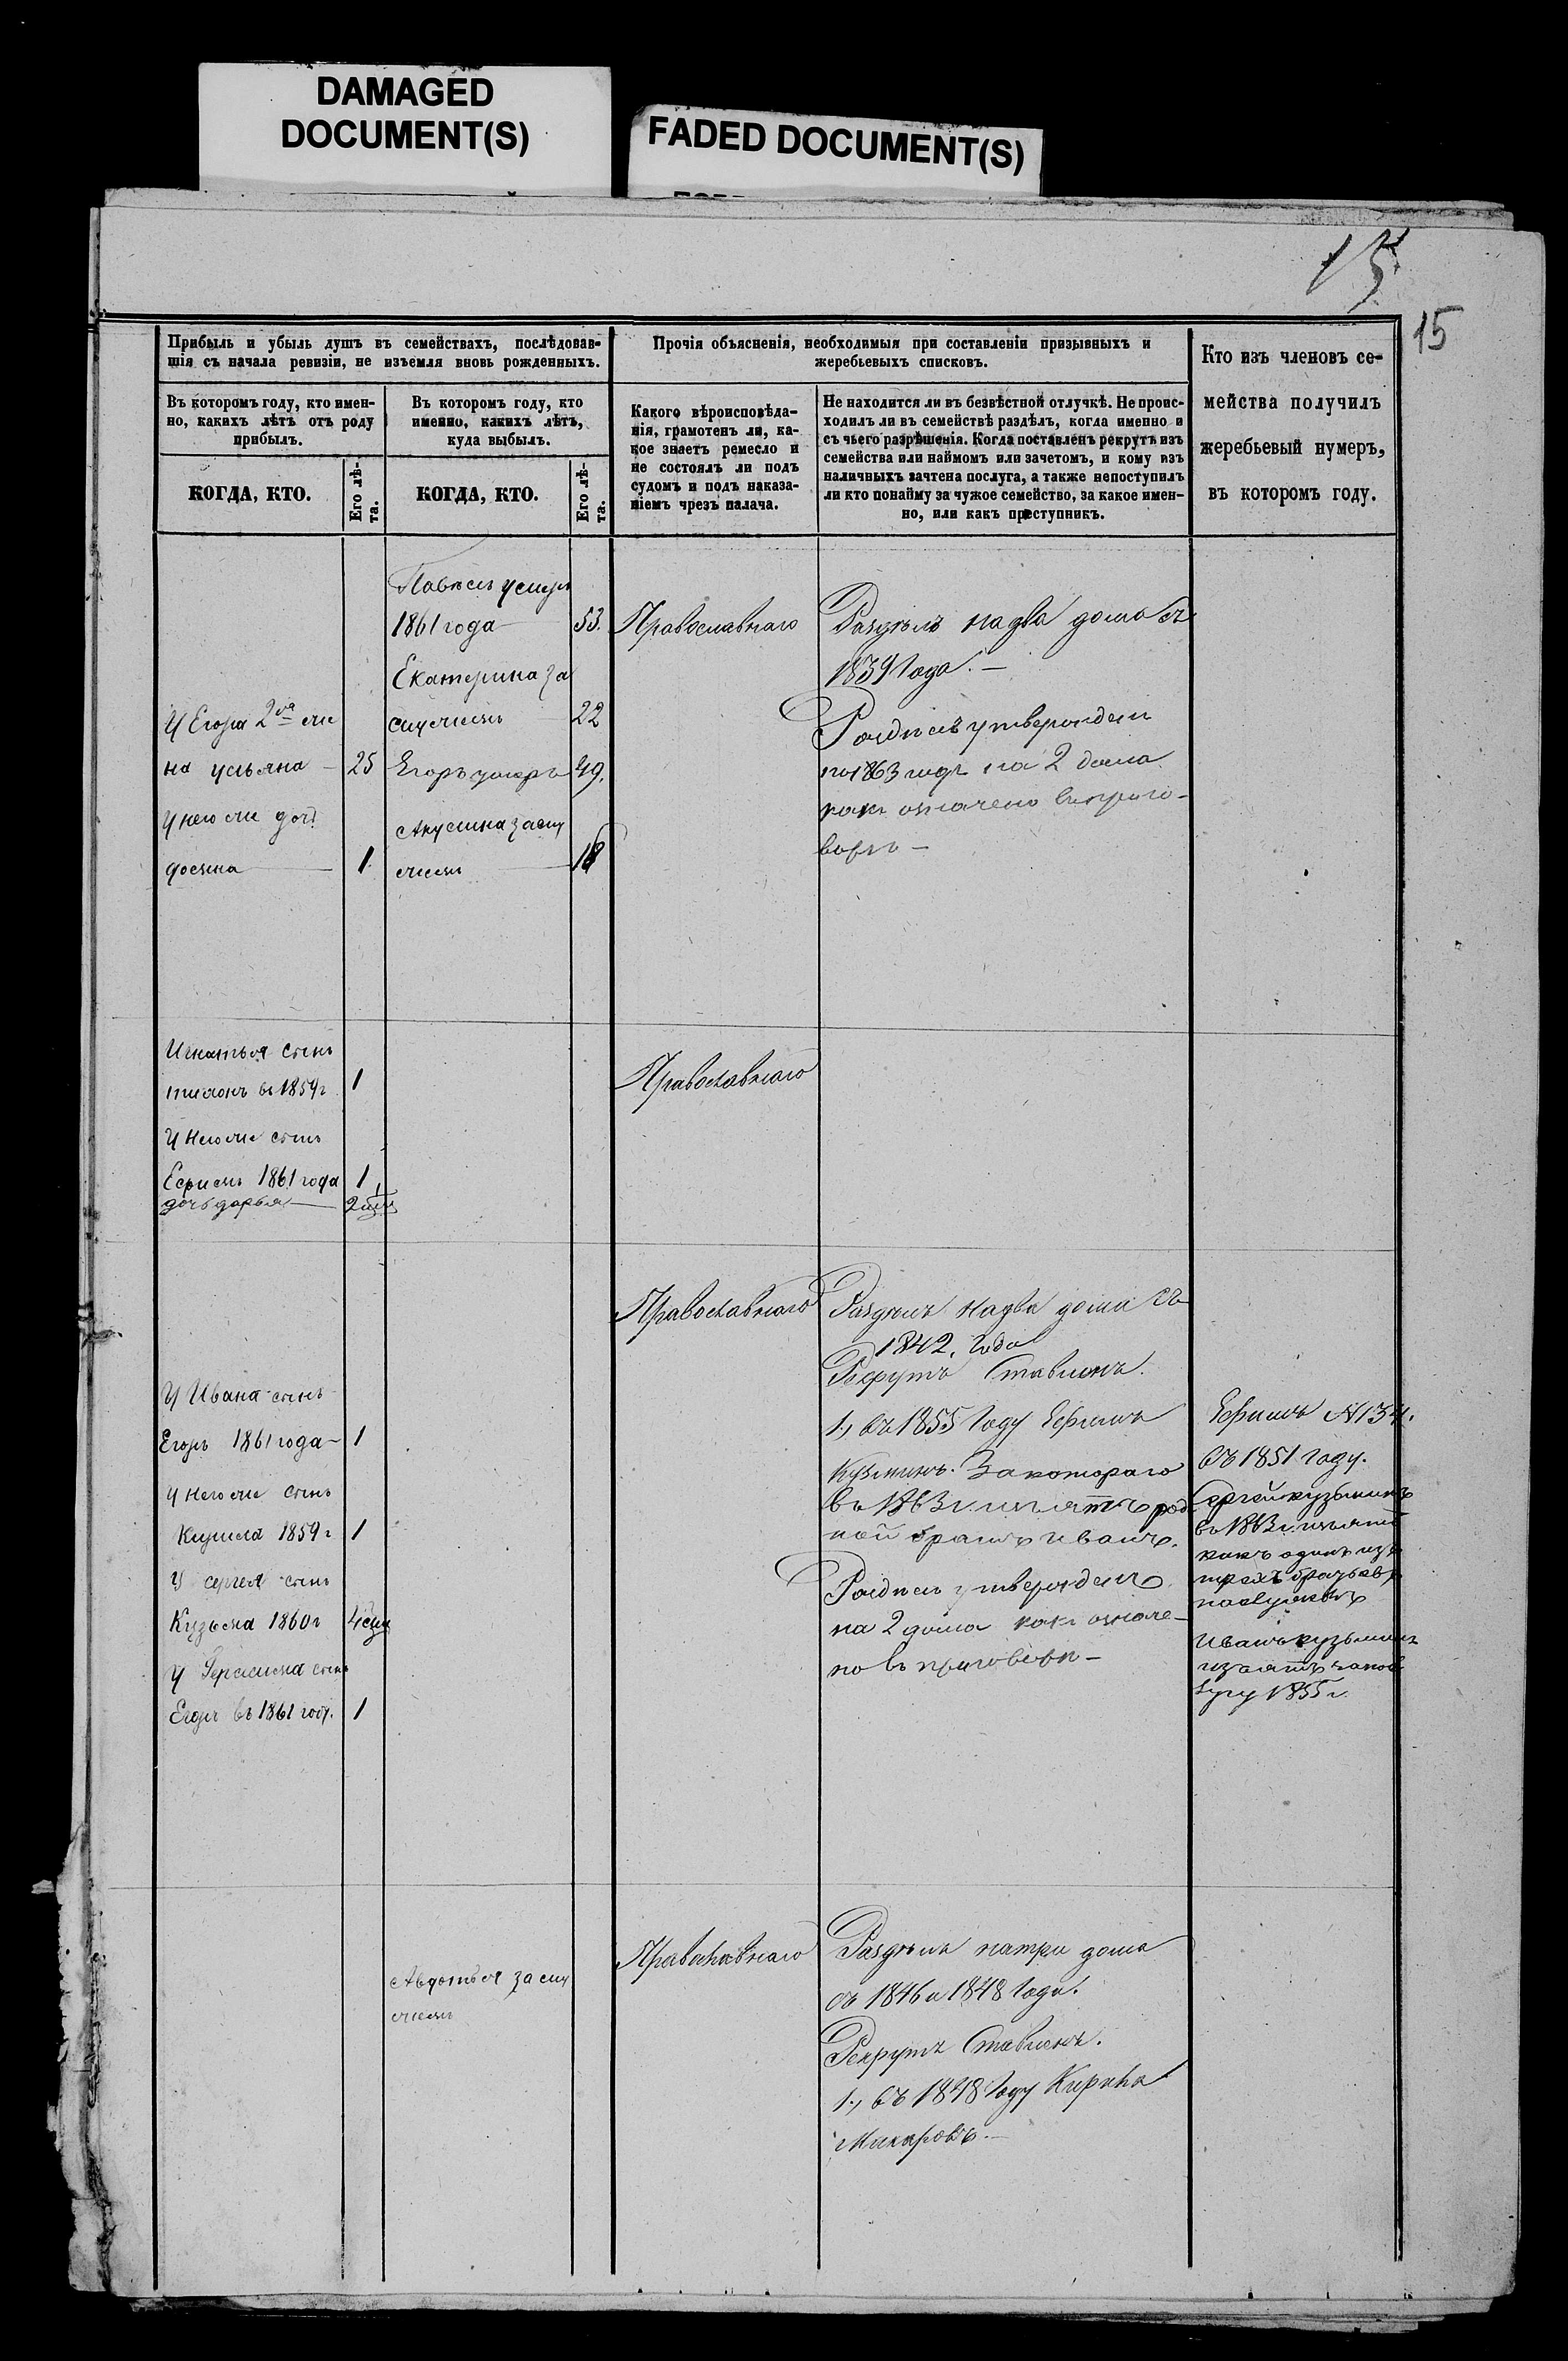 DAMAGED
DOCUMENT(S)
FADED DOCUMENT(S)
15
15
Прибыль и убыль душъ въ семействахъ, послѣдовав-
шія съ начала ревизіи, не изъемля вновь рожденныхъ.
Въ которомъ году, кто имен-
но, какихъ лѣтъ отъ роду
прибылъ.
КОГДА, КТО.
Его лѣ-
та.
Въ которомъ году, кто
именно, какихъ лѣтъ,
куда выбылъ.
КОГДА, КТО.
Его лѣ-
та.
Прочія объясненія, необходимыя при составленіи призывныхъ и
жеребьевыхъ списковъ.
Какого вѣроисповѣда-
нія, грамотенъ ли, ка-
кое знаетъ ремесло и
не состоялъ ли подъ
судомъ и подъ наказа-
ніемъ чрезъ палача.
Не находится ли въ безвѣстной отлучкѣ. Не проис-
ходилъ ли въ семействѣ раздѣлъ, когда именно и
съ чьего разрѣшенія. Когда поставленъ рекрутъ изъ
семейства или наймомъ или зачетомъ, и кому изъ
наличныхъ зачтена послуга, а также непоступилъ
ли кто понайму за чужое семейство, за какое имен-
но, или какъ преступникъ.
Кто изъ членовъ се-
мейства получилъ
жеребьевый нумеръ,
въ которомъ году.
У Егора 2ая же
на ульяна 25
у него же доч
1
Павелъ умеръ
1861 года 53.
Екатерина за
мужемъ 22
Егоръ умеръ 49.
Акулина заму
жемъ 18
Православнаго
Раздѣлъ на два дома съ
1839 Года.
Раздѣлъ утвержден
1863 годъ на 2 дома
какъ означено въ приго-
ворѣ
Игнатья сынъ
въ 1859 г 1
У него же сынъ
Ефимъ 1861 года 1
дочь дарья 2
Православнаго
У Ивана сынъ
Егоръ 1861 года 1
У него же сынъ
1859 г 1
У сергея сынъ
Кузьма 1860 г
У Герасима сынъ
Егоръ въ 1861 году. 1
Православнаго
Раздѣлъ на два дома съ
1842, Года
Рекрутъ Ставленъ.
1., въ 1855 Году Ефимъ
Кузминъ. За котораго
въ 1863 г. изъятъ род
ной братъ иванъ.
Раздѣлъ утвержденъ
на 2 дома какъ означе-
но въ приговорѣ
Ефимъ № 134.
въ 1851 Году.
Сергей кузьминъ
въ 1863 г. изъятъ
какъ одинъ изъ
трехъ братьевъ
Иванъ кузьминъ
изъятъ
1855 г.
Авдотья за му
жемъ
Православнаго
Раздѣлъ на три дома
съ 1846 и 1848 Года.
Рекрутъ Ставленъ.
1., въ 1848 Году Кирила
Макаровъ.